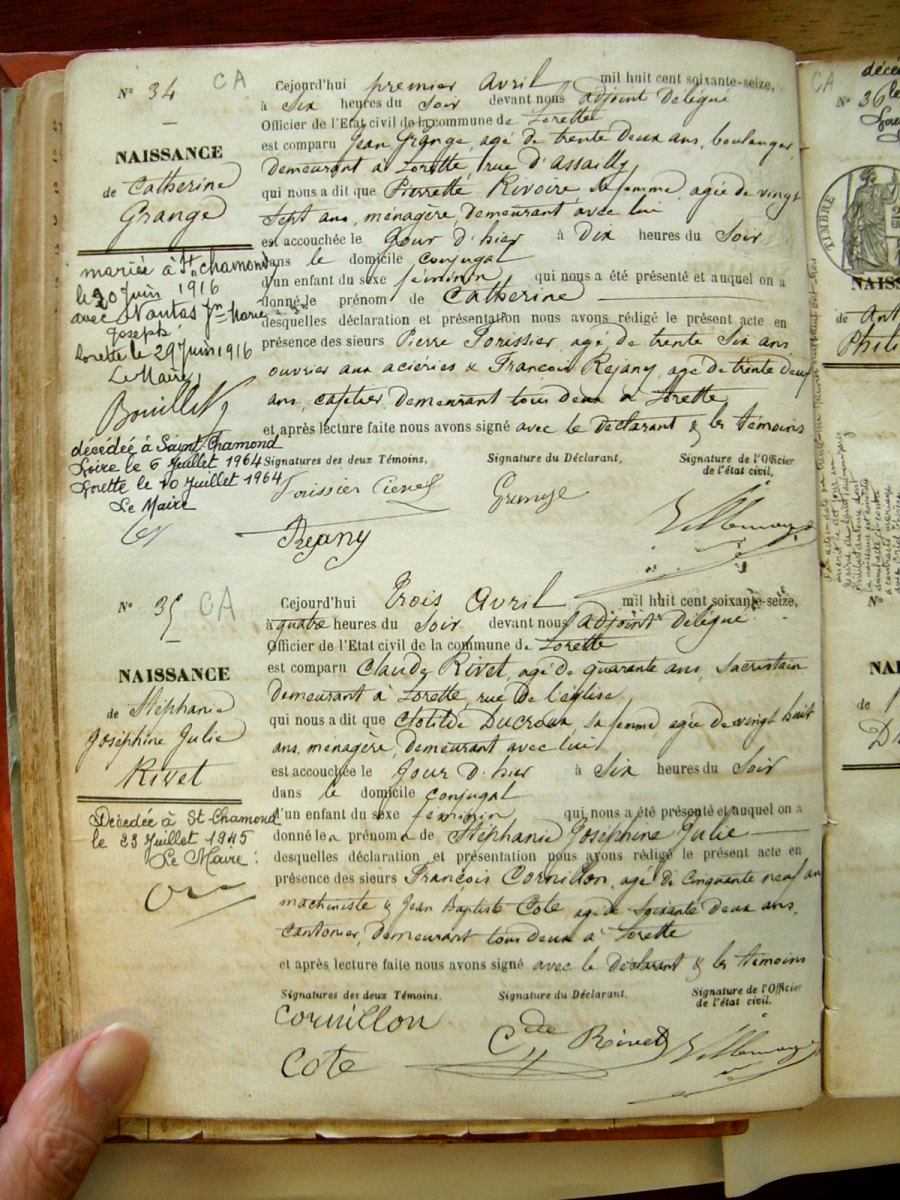 N° 34 CA
NAISSANCE
de Catherine
Grange
mariée à St chamond
le 20 juin 1916
avec Nantas Jn Marie
Joseph.
Lorette le 29 juin 1916
Le Maire,
décédée à Saint-Chamond
Loire le 6 Juillet 1964
Lorette le 10 Juillet 1964
Le Maire
Cejourd'hui premier Avril mil huit cent soixante-seize,
à Six heures du Soir devant nous adjoint délégué
Officier de l'Etat civil de la commune de Lorette
est comparu Jean Grange, agé de trente deux ans, boulanger,
demeurant a Lorette, rue d'assailly,
qui nous a dit que Pierrette Rivoire, sa femme, agée de vingt
sept ans, ménagère, demeurant avec lui
est accouchée le Jour d'hier à Dix heures du Soir
dans le domicile conjugal
d'un enfant du sexe féminin qui nous a été présenté et auquel on a
donné le prénom de Catherine
desquelles déclaration et présentation nous avons rédigé le présent acte en
présence des sieurs Pierre Porissier, agé de trente Six ans,
ouvrier aux aciéries & François Rejany, agé de trente deux
ans, cafetier, demeurant tous deux a Lorette
et après lecture faite nous avons signé avec le déclarant & les témoins
Signatures des deux Témoins, Signature du Déclarant, Signature de l'Officier
de l'état civil,
Grange
Rejany
N° 35 CA
NAISSANCE
de Stéphanie
Joséphine Julie
Rivet
Décédée à St Chamond
le 23 Juillet 1945
Le Maire :
Cejourd'hui Trois Avril mil huit cent soixante-seize,
à quatre heures du Soir devant nous adjoint délégué
Officier de l'Etat civil de la commune de Lorette
est comparu Claude Rivet, agé de quarante ans, Sacristain
demeurant a Lorette, rue de l'église,
qui nous a dit que Clotilde Ducroux, sa femme, agée de vingt huit
ans, ménagère, demeurant avec lui
est accouchée le Jour d'hier à Six heures du Soir
dans le domicile conjugal
d'un enfant du sexe féminin qui nous a été présenté et auquel on a
donné les prénoms de Stéphanie Joséphine Julie
desquelles déclaration et présentation nous avons rédigé le présent acte en
présence des sieurs François Cornillon, agé de Cinquante neuf ans
machiniste & Jean Baptiste Cote agé de Soixante deux ans,
Cantonier, demeurant tous deux a Lorette
et après lecture faite nous avons signé avec le déclarant & les témoins
Signatures des deux Témoins, Signature du Déclarant, Signature de l'Officier
de l'état civil,
Cornillon
Cde Rivet
Cote
CA
N° 36
TIMBRE
NAISS
de Ant
Phili
N°
NAI
de